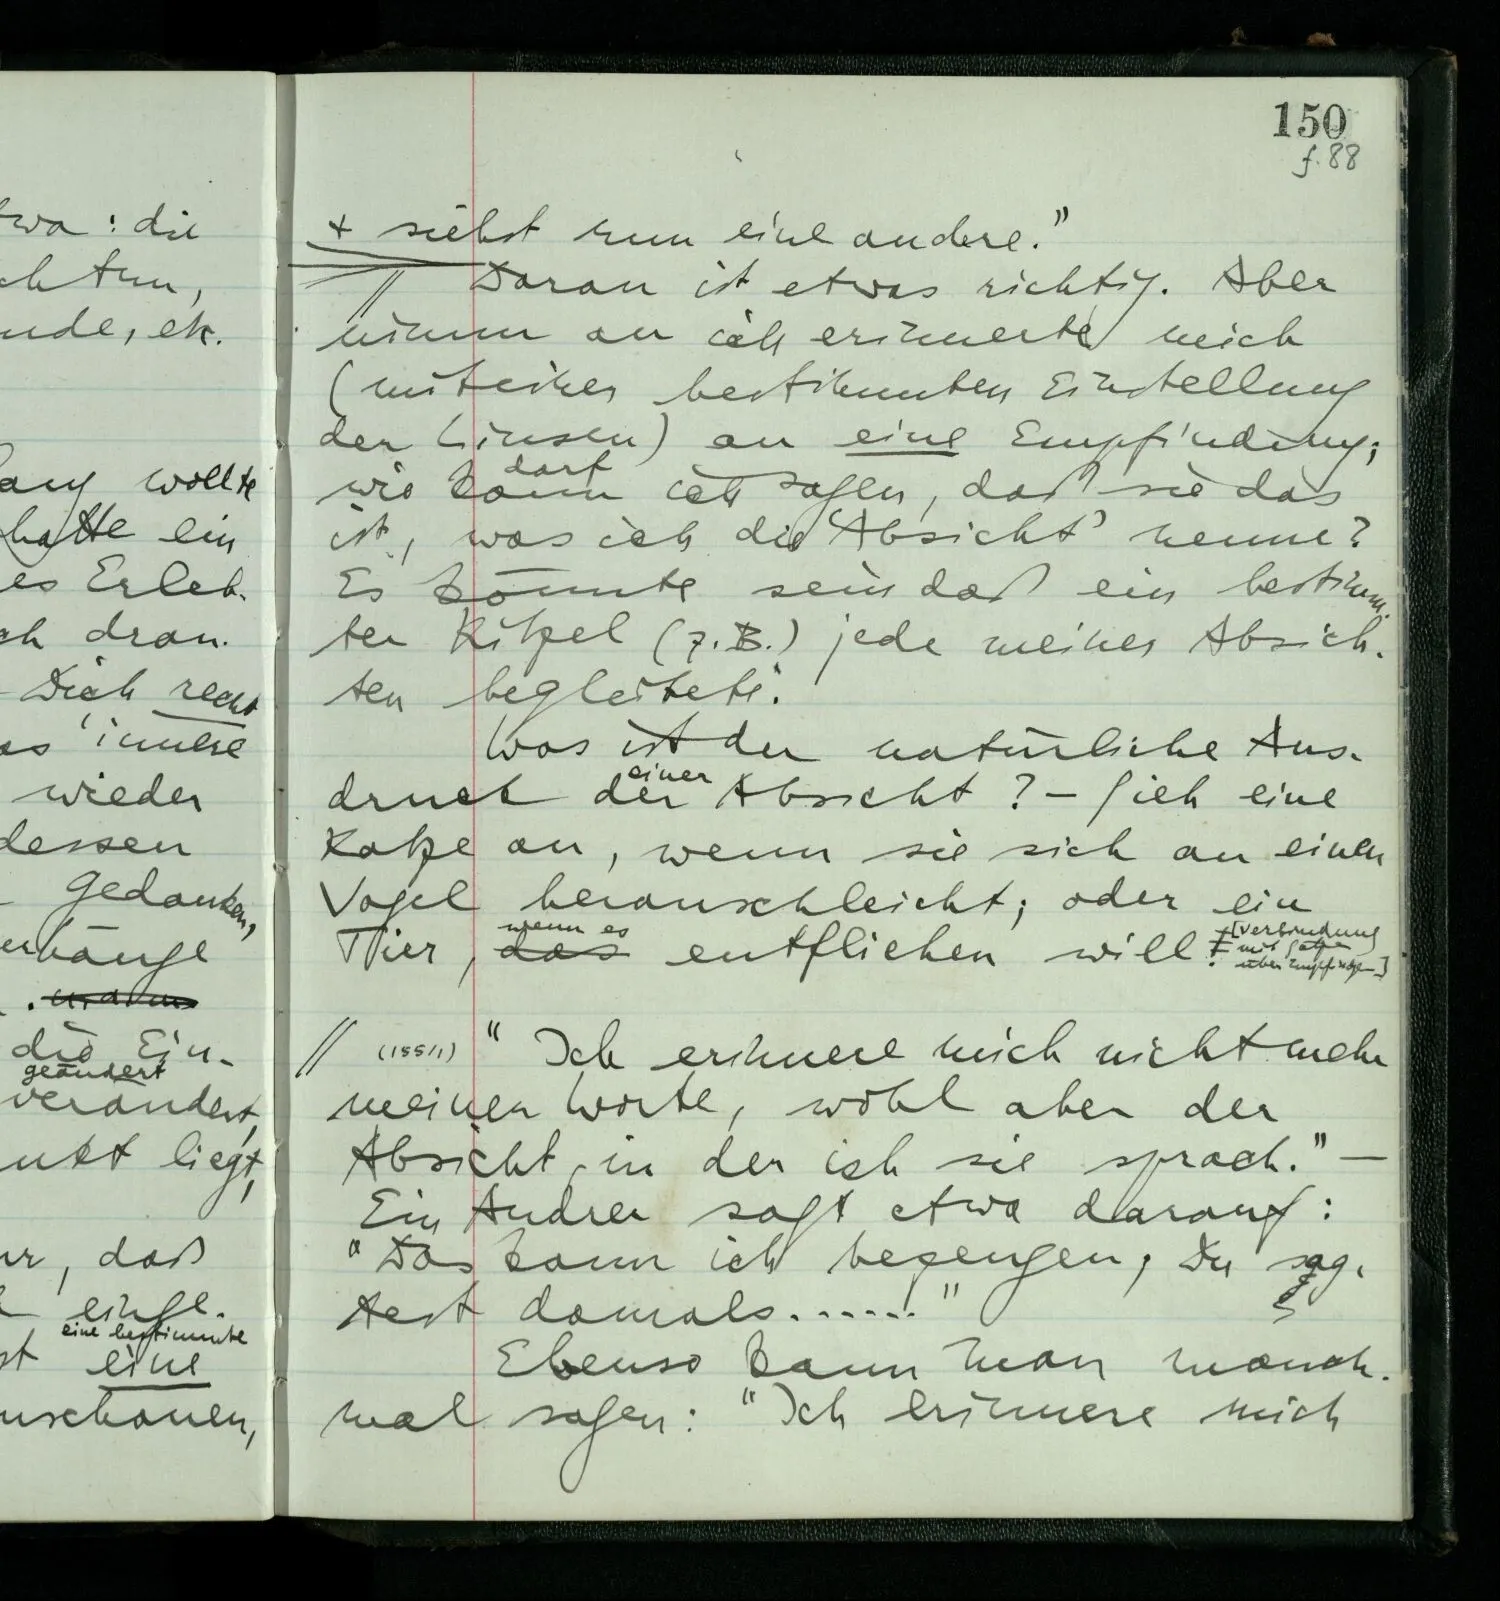 twa: die
chten,
nde, etc.
ang wollte
hatte ein
es Erleb-
ch dran.
Dich recht
as 'innere
wieder
dessen
Gedanken,
enhänge
die Ein-
geändert
verändert,
nkt liegt,
ur, daß
einge-
eine bestimmte
st eine
nschauen,
150
f. 88
+ siehst nun eine andere.”
// Daran ist etwas richtig. Aber
nimm an ich erinnerte mich
(mit einer bestimmten Einstellung
der Linsen) an eine Empfindung;
darf
wie kann ich sagen, daß sie das
ist, was ich die ‘Absicht’ nenne?
Es könnte sein daß ein bestimm-
ter Kitzel (z.B.) jede meiner Absich-
ten begleitete.
Was ist der natürliche Aus-
einer
druck der Absicht? – Sieh eine
Katze an, wenn sie sich an einen
Vogel heranschleicht; oder ein
wenn es
Tier, das entfliehen will.
[Verbindung
mit Sätze
über Empfindungen]
// (155/1) “Ich erinnere mich nicht mehr
meiner Worte, wohl aber der
Absicht, in der ich sie sprach.” –
Ein Andrer sagt etwa darauf:
“Das kann ich bezeugen; Du sag-
test damals......”
Ebenso kann man manch-
mal sagen: “Ich erinnere mich